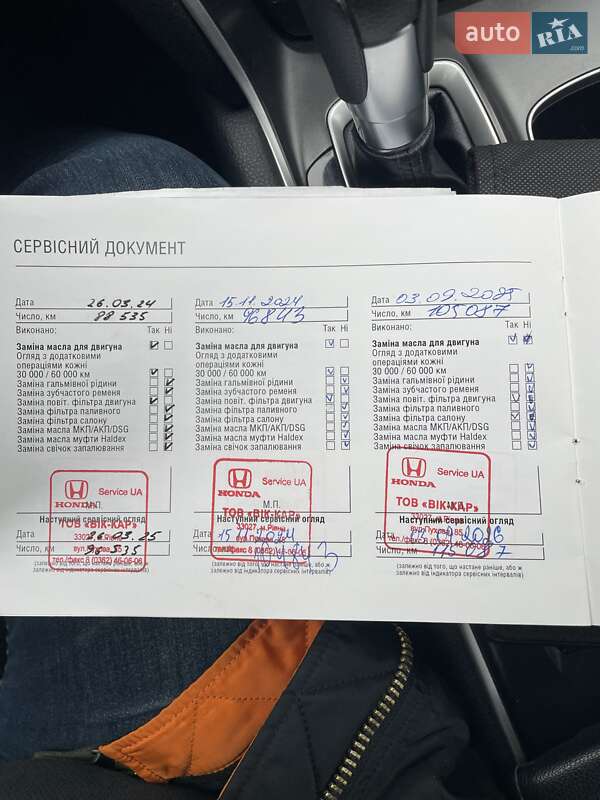 auto RIA.com
СЕРВІСНИЙ ДОКУМЕНТ
Дата 26.03.24
Число, км 88 535
Виконано: Так Ні
Заміна масла для двигуна
Огляд з додатковими
операціями кожні
30 000 / 60 000 км
Заміна гальмівної рідини
Заміна зубчастого ременя
Заміна повіт. фільтра двигуна
Заміна фільтра паливного
Заміна фільтра салону
Заміна масла МКП/АКП/DSG
Заміна масла муфти Haldex
Заміна свічок запалювання
HONDA Service UA
М.П.
ТОВ «ВІК-КАР»
Наступний сервісний огляд
Дата 26.03.25
Число, км
тел./факс 8 (0362) 46-06-06
(залежно від того, що настане раніше, або ж
залежно від індикатора сервісних інтервалів)
Дата 15.11.2024
Число, км 96843
Виконано: Так Ні
Заміна масла для двигуна
Огляд з додатковими
операціями кожні
30 000 / 60 000 км
Заміна гальмівної рідини
Заміна зубчастого ременя
Заміна повіт. фільтра двигуна
Заміна фільтра паливного
Заміна фільтра салону
Заміна масла МКП/АКП/DSG
Заміна масла муфти Haldex
Заміна свічок запалювання
HONDA Service UA
М.П.
ТОВ «ВІК-КАР»
Наступний сервісний огляд
33027, м.Рівне
Дата
Число, км
(залежно від того, що настане раніше, або ж
залежно від індикатора сервісних інтервалів)
Дата 03.09.2025
Число, км 105087
Виконано: Так Ні
Заміна масла для двигуна
Огляд з додатковими
операціями кожні
30 000 / 60 000 км
Заміна гальмівної рідини
Заміна зубчастого ременя
Заміна повіт. фільтра двигуна
Заміна фільтра паливного
Заміна фільтра салону
Заміна масла МКП/АКП/DSG
Заміна масла муфти Haldex
Заміна свічок запалювання
HONDA Service UA
ТОВ «ВІК-КАР»
Наступний сервісний огляд
33027, м.Рівне
Дата 2026
Число, км 115 087
(залежно від того, що настане раніше, або ж
залежно від індикатора сервісних інтервалів)